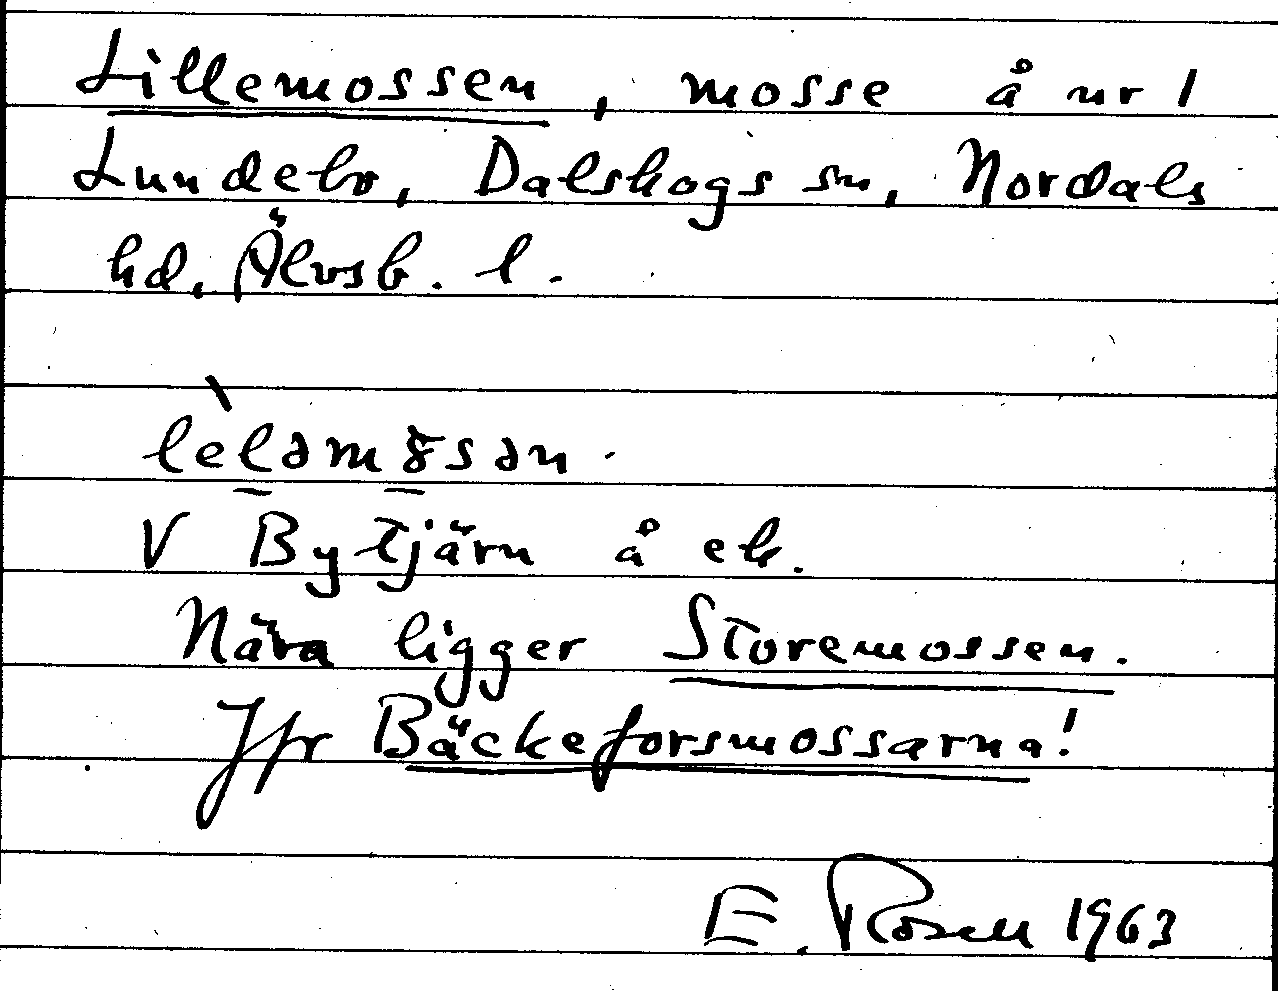 Lillemossen, mosse å nr 1
Lundebo, Dalskogs sn, Nordals
hd. Älvsb. l.
lèləmɞsən.
V Bytjärn å ek.
Nära ligger Storemossen.
Jfr Bäckeforsmossarna!
E. Rosell 1963